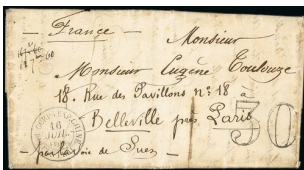 — France —
Monsieur
Monsieur Eugène Toulouze
18. Rue des Pavillons nº 18 à
Belleville près Paris
30
— par la voie de Suez —